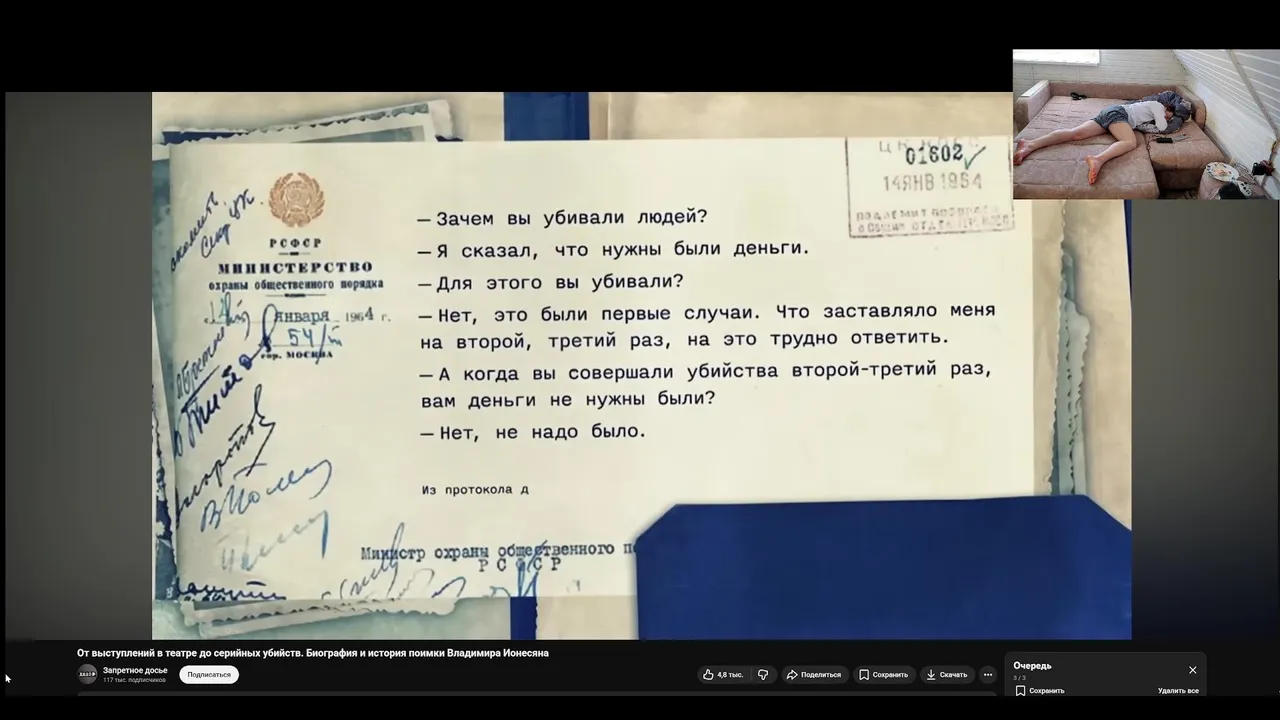 01602
14ЯНВ 1964
РСФСР
МИНИСТЕРСТВО
охраны общественного порядка
января 1964 г.
54/
гор. МОСКВА
— Зачем вы убивали людей?
— Я сказал, что нужны были деньги.
— Для этого вы убивали?
— Нет, это были первые случаи. Что заставляло меня
на второй, третий раз, на это трудно ответить.
— А когда вы совершали убийства второй-третий раз,
вам деньги не нужны были?
— Нет, не надо было.
Из протокола д
Министр охраны общественного
РСФСР
От выступлений в театре до серийных убийств. Биография и история поимки Владимира Ионесяна
Запретное досье
117 тыс. подписчиков
Подписаться
4,8 тыс.
Поделиться
Сохранить
Скачать
Очередь
3 / 3
Сохранить
Удалить все